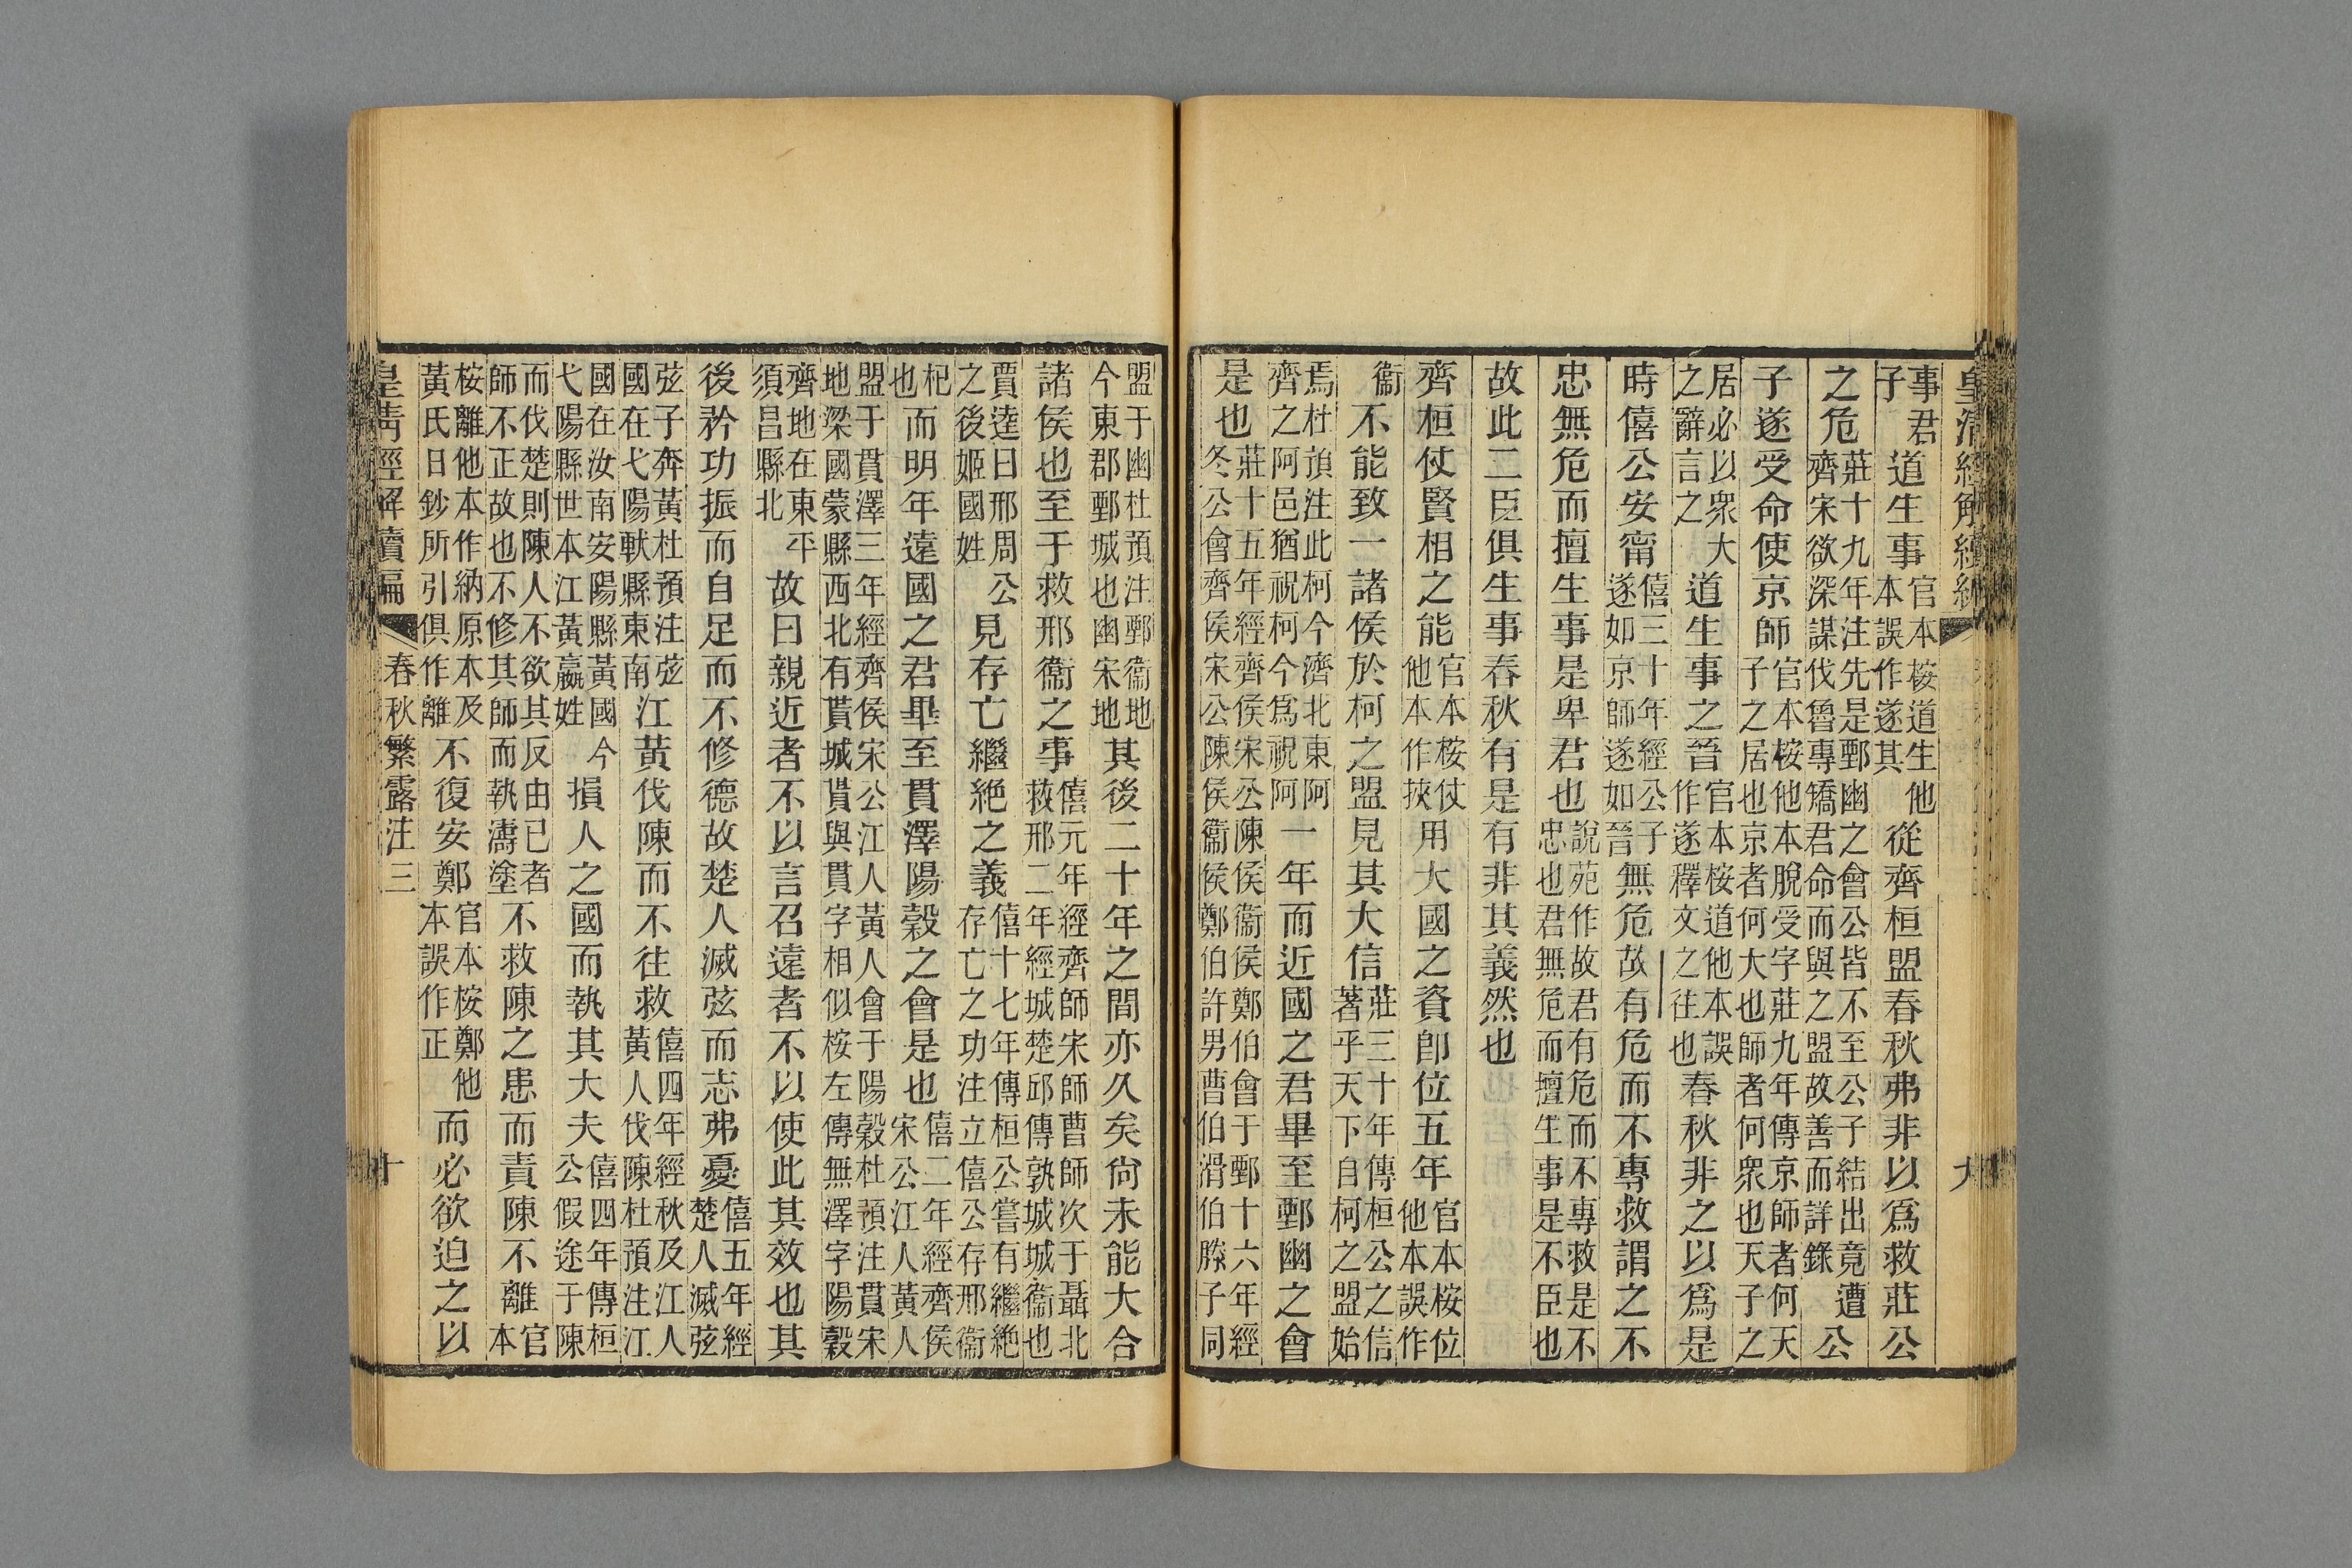 皇清經解續編
事君子道生事官本桉道生他本誤作遂其從齊桓盟春秋弗非以爲救莊公
之危莊十九年注先是鄄幽之會公皆不至公子結出竟遭齊宋欲深謀伐魯專矯君命而與之盟故善而詳錄公
子遂受命使京師官本桉他本脫受字莊九年傳京師者何天子之居也京者何大也師者何衆也天子之
居必以衆大之辭言之道生事之晉官本桉道他本誤作遂釋文之往也春秋非之以爲是
時僖公安甯僖三十年經公子遂如京師遂如晉無危故有危而不專救謂之不
忠無危而擅生事是卑君也說苑作故君有危而不專救是不忠也君無危而擅生事是不臣也
故此二臣俱生事春秋有是有非其義然也
齊桓仗賢相之能官本桉仗他本作挾用大國之資卽位五年官本桉位他本誤作
衞不能致一諸侯於柯之盟見其大信莊三十年傳桓公之信著乎天下自柯之盟始
焉杜預注此柯今濟北東阿齊之阿邑猶祝柯今爲祝阿一年而近國之君畢至鄄幽之會
是也莊十五年經齊侯宋公陳侯衞侯鄭伯會于鄄十六年經冬公會齊侯宋公陳侯衞侯鄭伯許男曹伯滑伯滕子同
盟于幽杜預注鄄衞地今東郡鄄城也幽宋地其後二十年之間亦久矣尙未能大合
諸侯也至于救邢衞之事僖元年經齊師宋師曹師次于聶北救邢二年經城楚邱傳孰城城衞也
賈逵曰邢周公之後姬國姓見存亡繼絶之義僖十七年傳桓公嘗有繼絶存亡之功注立僖公存邢衞
杞也而明年遠國之君畢至貫澤陽穀之會是也僖二年經齊侯宋公江人黃人
盟于貫澤三年經齊侯宋公江人黃人會于陽穀杜預注貫宋地梁國蒙縣西北有貰城貰與貫字相似桉左傳無澤字陽穀
齊地在東平須昌縣北故曰親近者不以言召遠者不以使此其效也其
後矜功振而自足而不修德故楚人滅弦而志弗憂僖五年經楚人滅弦
弦子奔黃杜預注弦國在弋陽軑縣東南江黃伐陳而不往救僖四年經秋及江人黃人伐陳杜預注江
國在汝南安陽縣黃國今弋陽縣世本江黃嬴姓損人之國而執其大夫僖四年傳桓公假途于陳
而伐楚則陳人不欲其反由己者師不正故也不修其師而執濤塗不救陳之患而責陳不離官本
桉離他本作納原本及黃氏日鈔所引俱作離不復安鄭官本桉鄭他本誤作正而必欲迫之以
皇清經解續編 春秋繁露注三 十